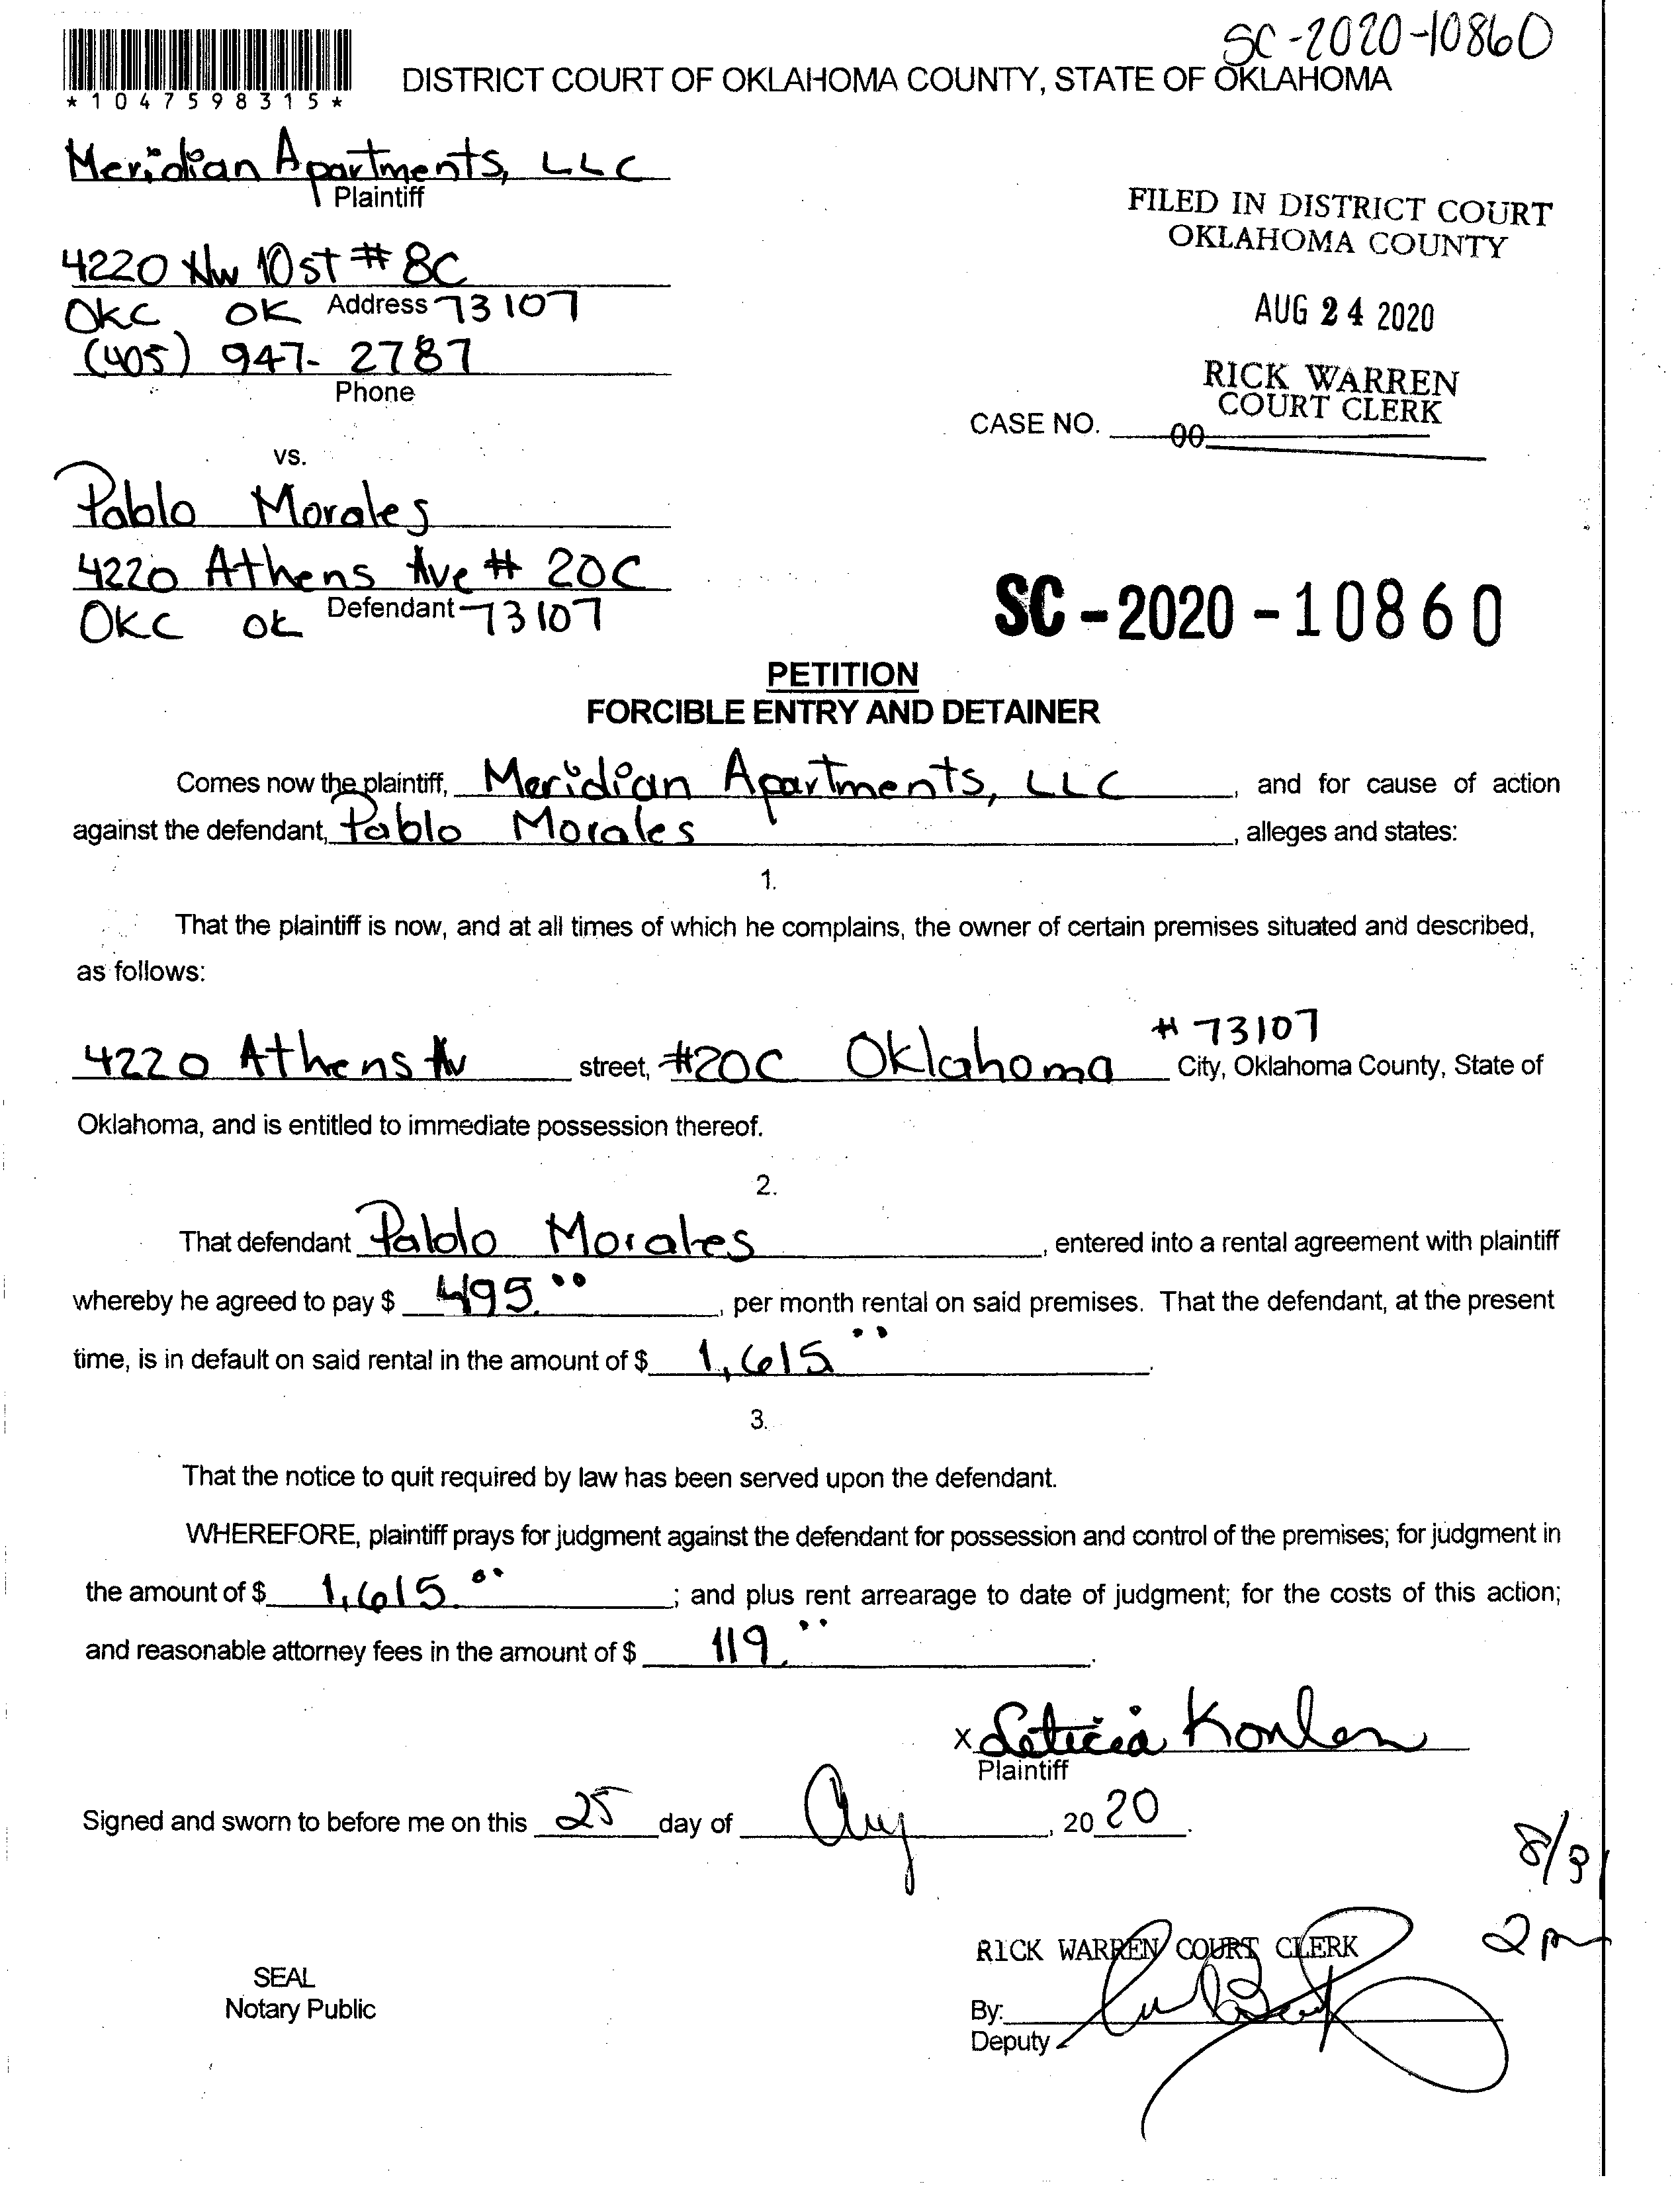 SC-2020-10860
*1047598315*
DISTRICT COURT OF OKLAHOMA COUNTY, STATE OF OKLAHOMA
Meridian Apartments, LLC
Plaintiff
4220 NW 10 st # 8C
Address
OKC OK 73107
(405) 947-2787
Phone
FILED IN DISTRICT COURT
OKLAHOMA COUNTY
AUG 24 2020
RICK WARREN
COURT CLERK
CASE NO.
00
vs.
Pablo Morales
4220 Athens Ave # 20C
Defendant
OKC OK 73107
SC-2020-10860
PETITION
FORCIBLE ENTRY AND DETAINER
Comes now the plaintiff, Meridian Apartments, LLC, and for cause of action
against the defendant, Pablo Morales, alleges and states:
1.
That the plaintiff is now, and at all times of which he complains, the owner of certain premises situated and described,
as follows:
# 73107
4220 Athens Av street, #20C Oklahoma City, Oklahoma County, State of
Oklahoma, and is entitled to immediate possession thereof.
2.
That defendant Pablo Morales, entered into a rental agreement with plaintiff
whereby he agreed to pay $ 495.00, per month rental on said premises. That the defendant, at the present
time, is in default on said rental in the amount of $ 1,615.00.
3.
That the notice to quit required by law has been served upon the defendant.
WHEREFORE, plaintiff prays for judgment against the defendant for possession and control of the premises; for judgment in
the amount of $ 1,615.00; and plus rent arrearage to date of judgment; for the costs of this action;
and reasonable attorney fees in the amount of $ 119.00.
x Leticia
Plaintiff
Signed and sworn to before me on this 25 day of Aug, 2020.
8/31
2 pm
RICK WARREN COURT CLERK
SEAL
Notary Public
By:
Deputy